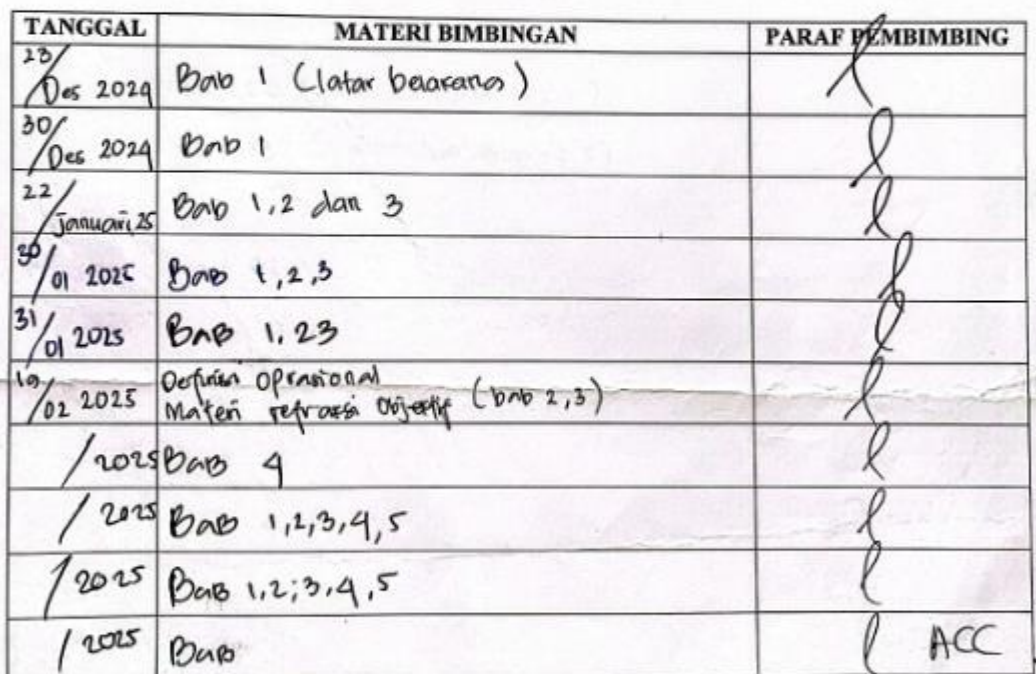 TANGGAL MATERI BIMBINGAN PARAF PEMBIMBING
23/Des 2024 Bab 1 (latar belakang)
30/Des 2024 Bab 1
22/Januari 25 Bab 1,2 dan 3
30/01 2025 Bab 1,2,3
31/01 2025 BAB 1, 23
19/02 2025 Definisi Oprasional
Materi refraksi Objektif (bab 2,3)
/ 2025 BAB 4
/ 2025 BAB 1,2,3,4,5
/ 2025 BAB 1,2;3,4,5
/ 2025 BAB ACC